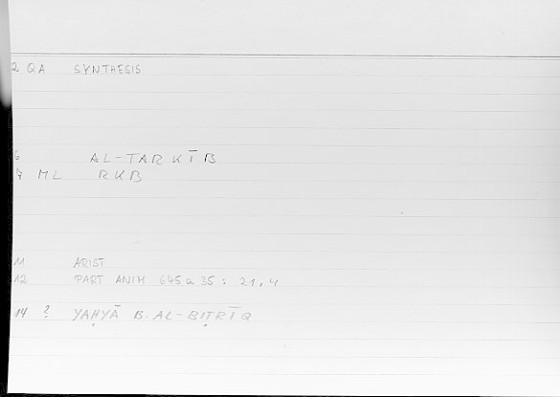 2 QA SYNTHESIS
6 AL-TARKĪB
7 ML RKB
11 ARIST
12 PART ANIM 645a35 : 21,4
14 ? YAḤYĀ B. AL-BIṬRĪQ